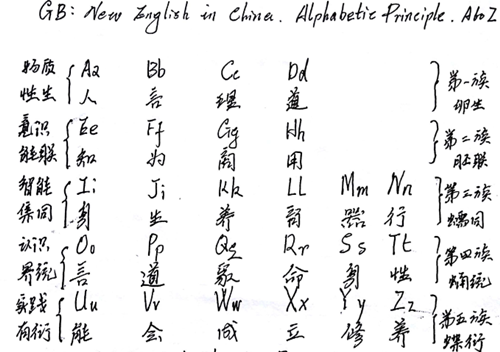 GB: New English in China. Alphabetic Principle. A to Z
物质 Aa Bb Cc Dd 第一族
性生 人 言 理 道 卵生
意识 Ee Ff Gg Hh 第二族
能联 知 为 商 用 胚联
智能 Ii Jj Kk Ll Mm Nn 第三族
集同 身 生 养 商 器 行 同
认识 Oo Pp Qq Rr Ss Tt 第四族
界统 言 道 家 命 身 性 统
实践 Uu Vv Ww Xx Yy Zz 第五族
有衍 能 会 成 立 修 养 蝶衍